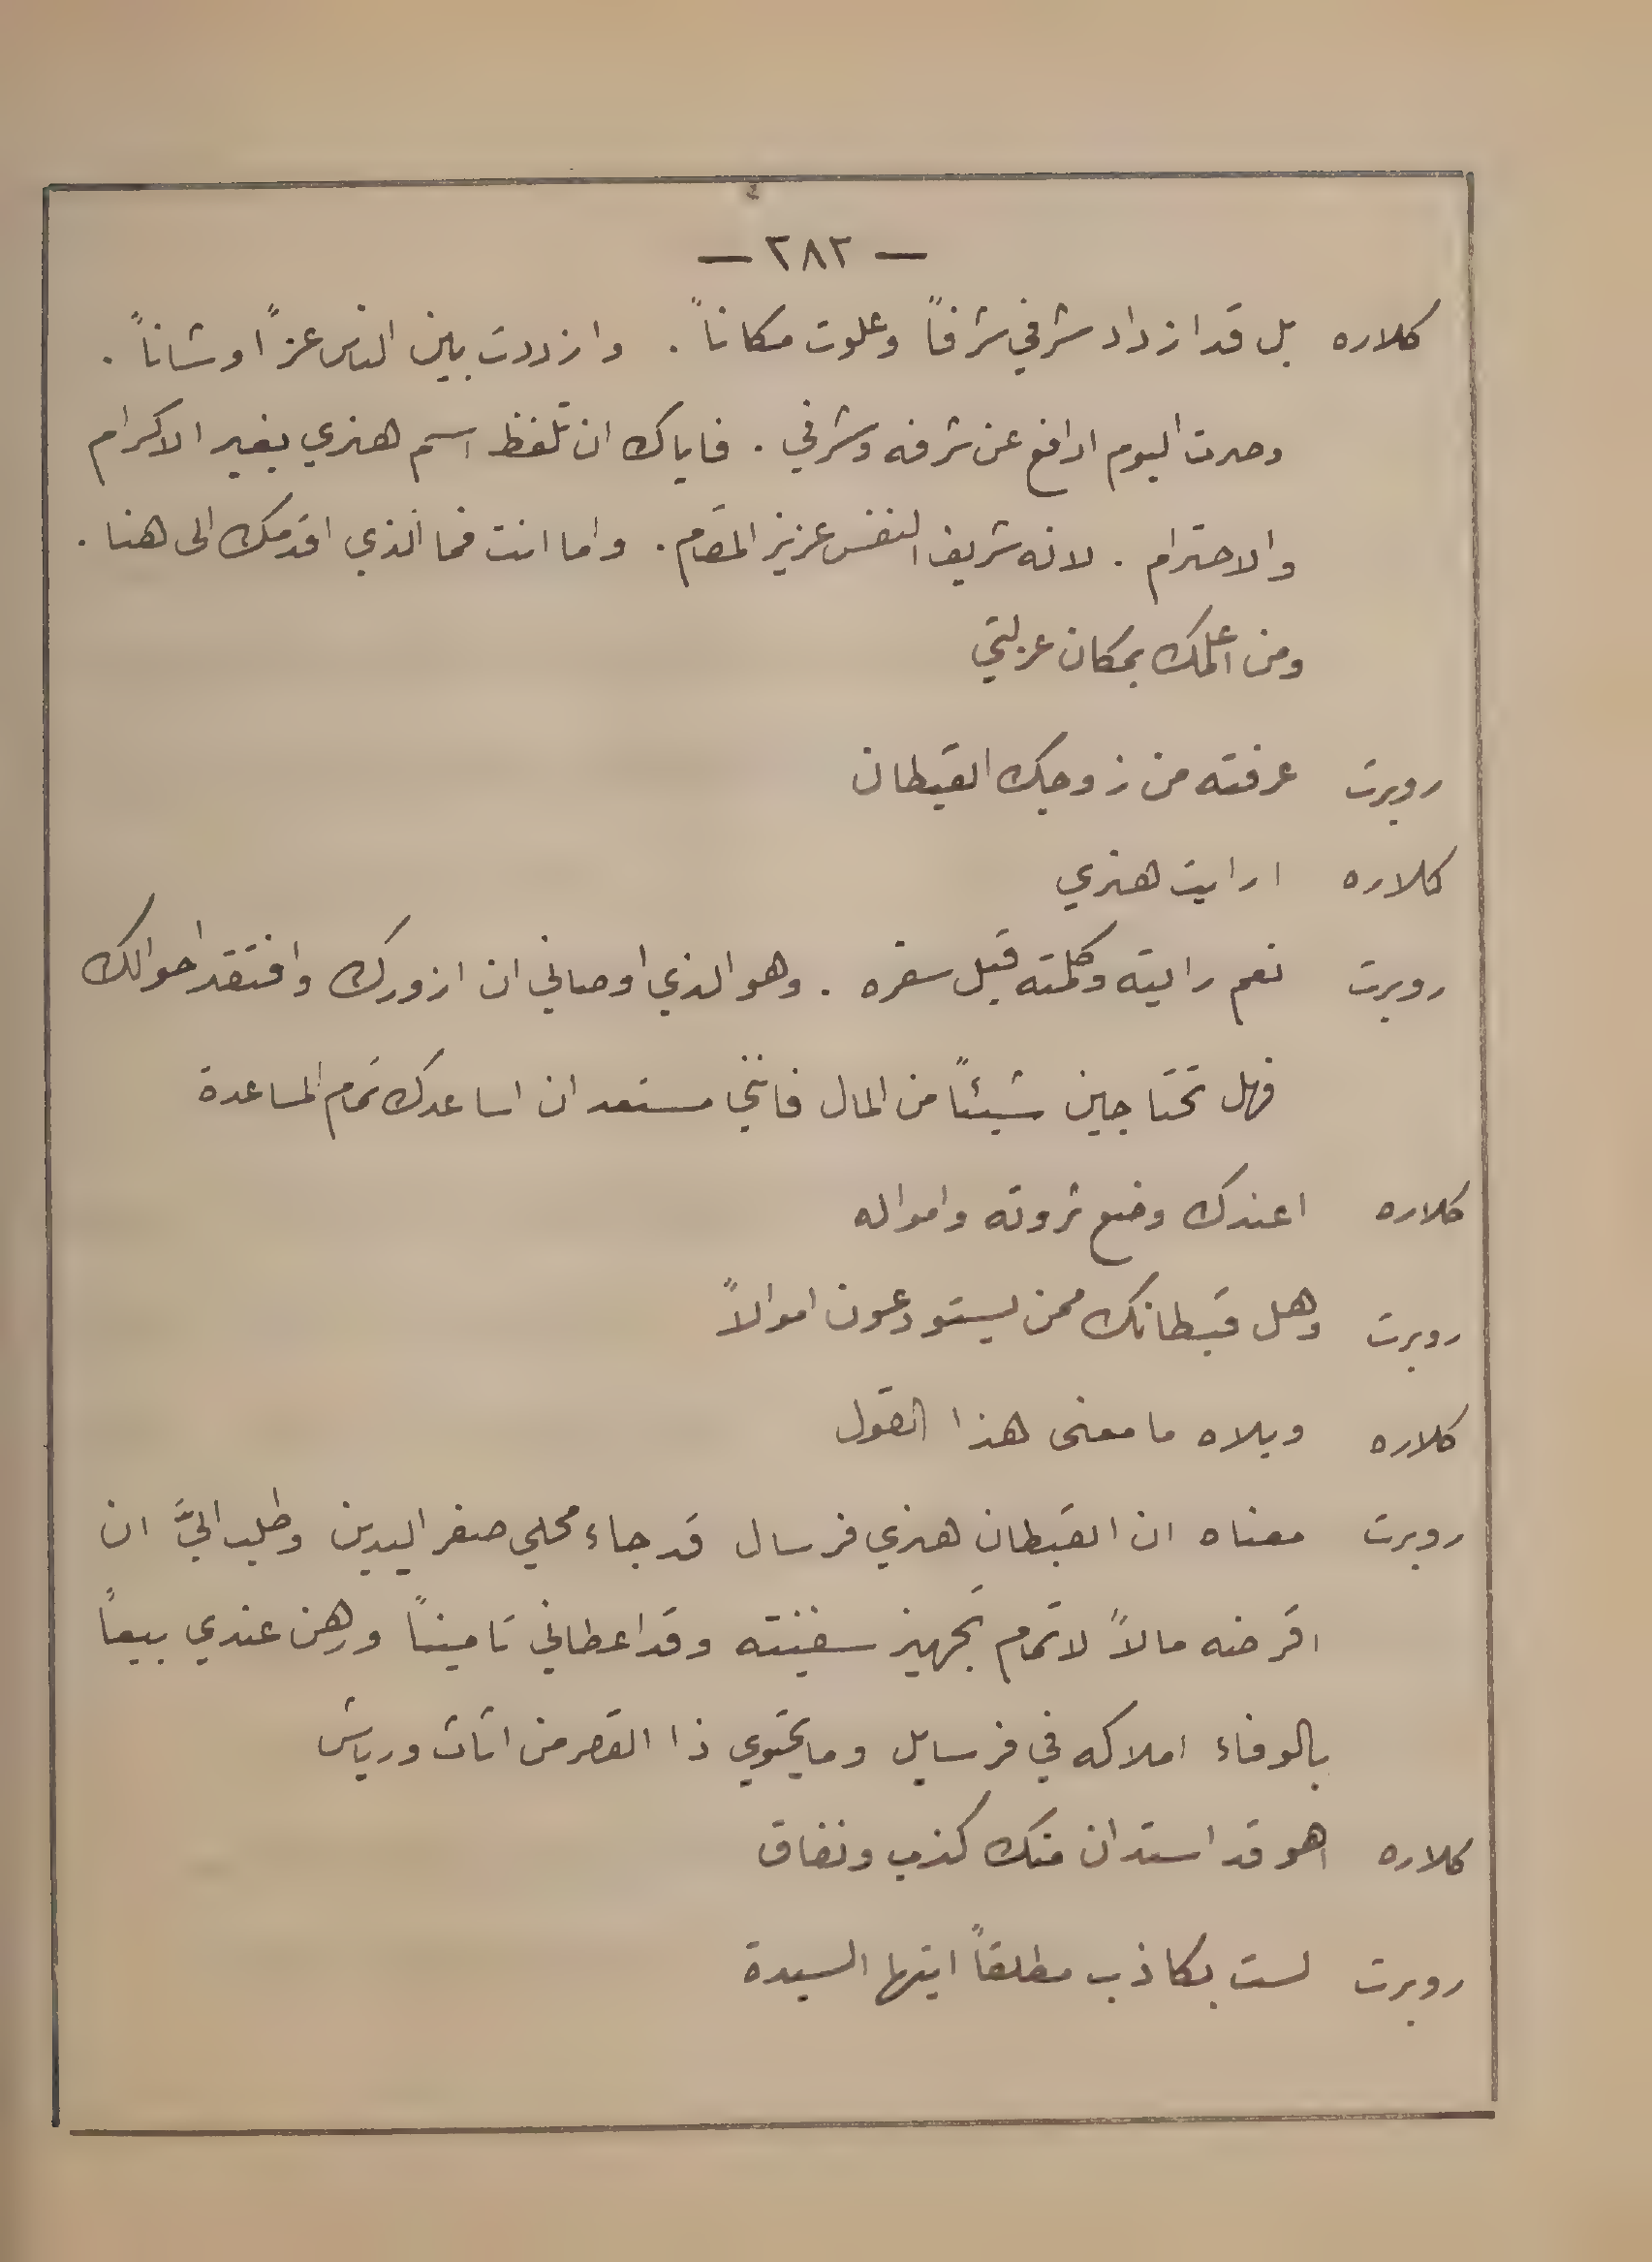 — ٢٨٢ —
كلاره بل قد ازداد شرفي شرفاً وعلوت مكاناً . وازددت بين الناس عزًا وشاناً .
وصرت اليوم ادافع عن شرفه وشرفي . فاياك ان تلفظ اسم هنري بغير الاكرام
والاحترام . لانه شريف النفس عزيز المقام . واما انت فما الذي اقدمك الى هنا .
ومن اعلمك بمكان عزلتي
روبرت عرفته من زوجك القبطان
كلاره ارايت هنري
روبرت نعم رايته وكلمته قبل سفره . وهو الذي اوصاني ان ازورك وافتقد احوالك
فهل تحتاجين شيئاً من المال فانني مستعد ان اساعدك تمام المساعدة
كلاره اعندك وضع ثروته وامواله
روبرت وهل قبطانك ممن يستودعون اموالاً
كلاره ويلاه ما معنى هذا القول
روبرت معناه ان القبطان هنري فرسال قد جاء محلي صفر اليدين وطلب اليَّ ان
اقرضه مالاً لاتمام تجهيز سفينته وقد اعطاني تاميناً ورهن عندي بيعاً
بالوفاء املاكه في فرسايل وما يحتوي ذا القصر من اثاث ورياش
كلاره اهو قد استدان منك كذب ونفاق
روبرت لست بكاذب مطلقاً ايتها السيدة